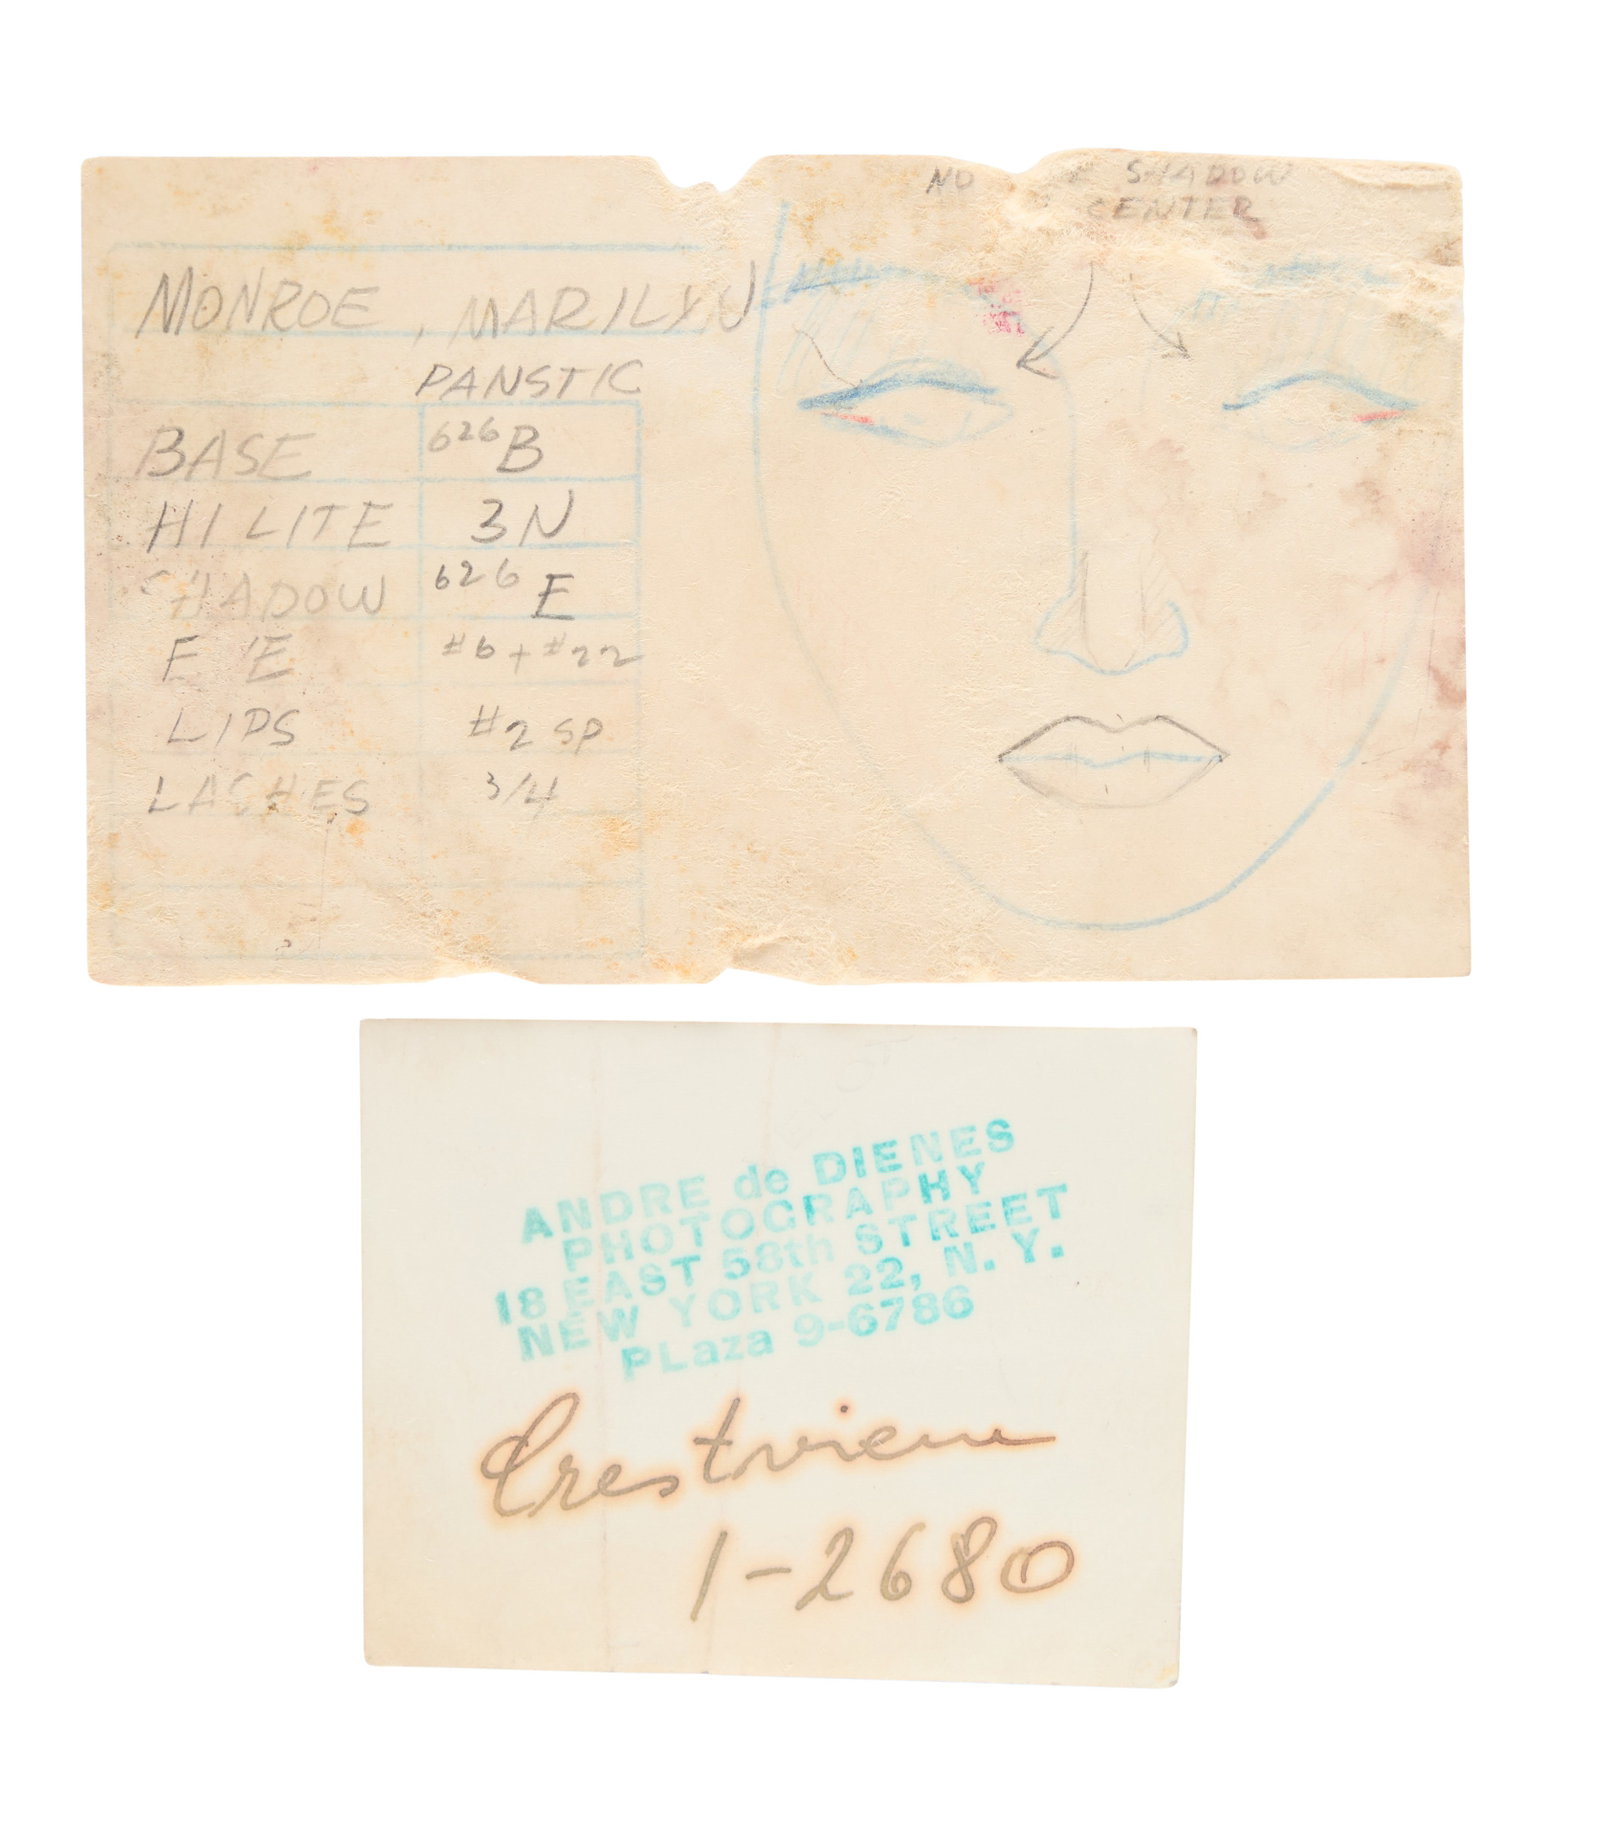 NO SHADOW
CENTER
MONROE, MARILYN
PANSTIC
BASE 626 B
HI LITE 3N
SHADOW 626 E
EYE #6 + #22
LIPS #2 SP
LASHES 3/4
ANDRE de DIENES
PHOTOGRAPHY
18 EAST 58th STREET
NEW YORK 22, N. Y.
PLaza 9-6786
Crestview
1-2680